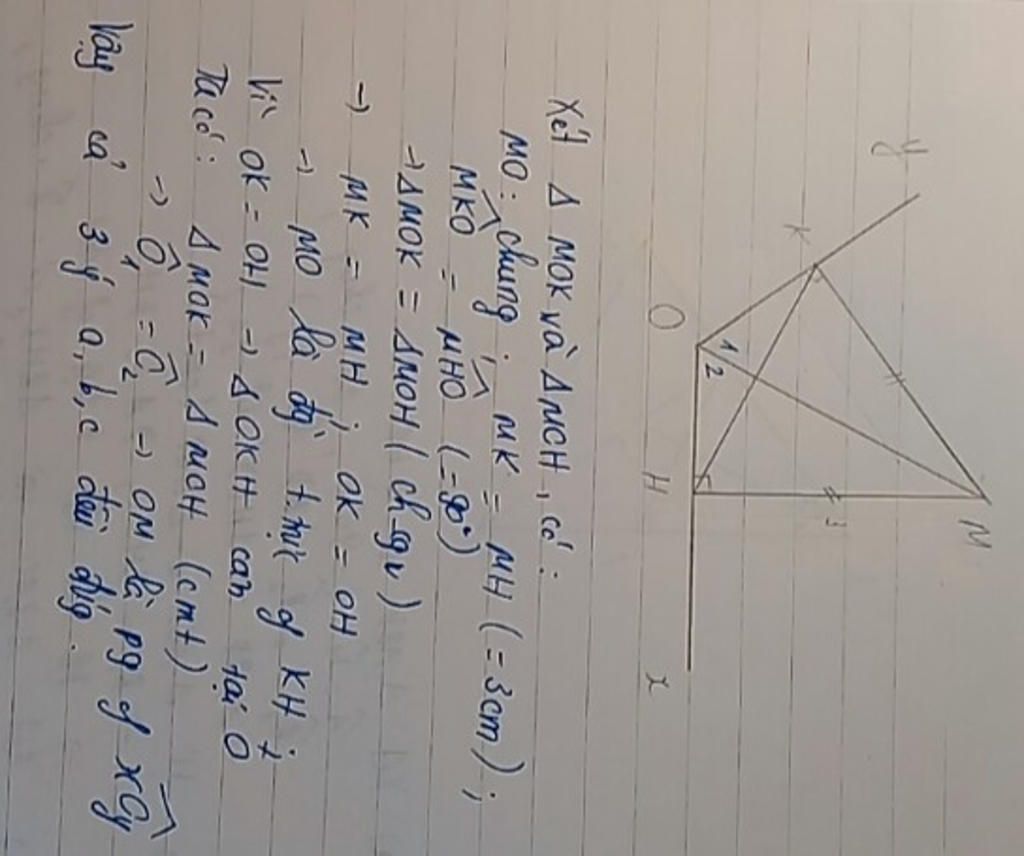 y
K
M
1
2
3
O
H
x
Xét Δ MOK và Δ MOH, có:
MO: chung; MK = MH (= 3cm);
MKO = MHO (= 90°)
→ Δ MOK = Δ MOH (ch-gv)
→ MK = MH; OK = OH
→ MO là đg t.trực of KH;
Vì OK = OH → Δ OKH cân tại O
Ta có: Δ MOK = Δ MOH (cmt)
→ Ô₁ = Ô₂ → OM là pg of xOy
Vậy cả 3 ý a, b, c đều đúg.